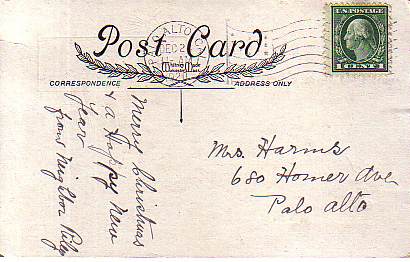 Post Card
PALO ALTO
DEC 2
U.S. POSTAGE
1 CENT 1
CORRESPONDENCE
ADDRESS ONLY
Merry Christmas
& a Happy New
Year
from Neighbor Riley
Mrs. Harms
680 Homer Ave
Palo Alto